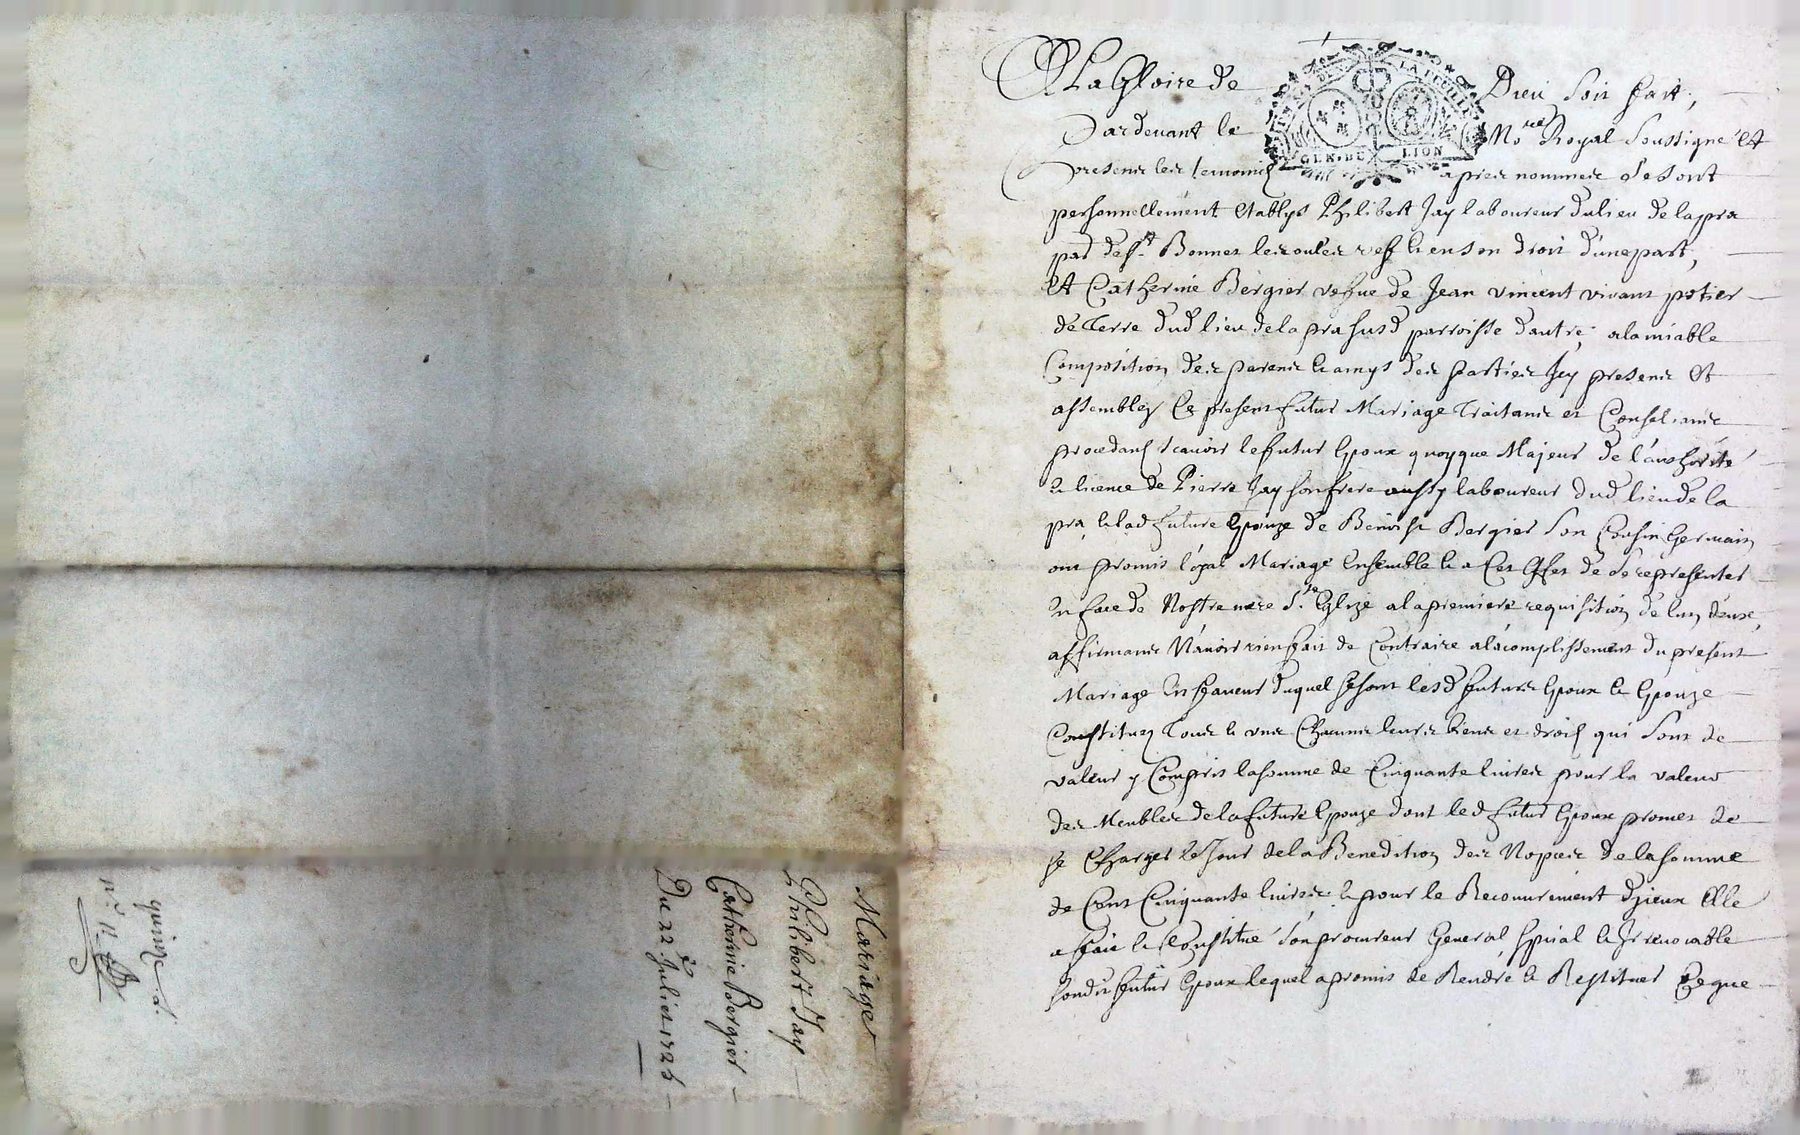 Mariage
Philibert Jay
Catherine Bergier
Du 22e Juliet
quinze s.
A La Gloire de Dieu soit fait,
Pardevant le No.re Royal soussigné et
presens les temoins apres nommes se sont
personnellement etablys Philibert Jay laboureur du lieu de la pra
par de St. Bonnet les oules et en son droit d'une part,
et Catherine Bergier vefve de Jean vincent vivant potier
de Terre dud lieu de la pra susd parroisse d'autre; a lamiable
Composition des parens et amys des parties Jcy presens et
assembles Ce present futur Mariage Traitans et Conselians
procedans scavoir le futur Epoux quoyque Majeur de l'authorité
et licence de Pierre Jay son frere aussy laboureur dud lieu de la
pra, et lad future Epouze de Benoist Bergier son Cousin Germain
ont promis Mariage Ensemble et a Cet Effet de se representer
En face de Nostre mere Ste. Eglize a la premiere requisition de lun deux,
affirmans N'avoir rien fait de Contraire a lacomplissement du present
Mariage En faveur duquel se sont lesd futurs Epoux et Epouze
Constitues Tous et uns Chacuns leurs biens et droits qui sont de
valeur y Compris la somme de Cinquante livres pour la valeur
des Meubles de la future Epouze dont led futur Epoux promet de
se Charger le Jour de la Benedition des Nopces de la somme
de Cent Cinquante livres et pour le Recouvrement d'jceux Elle
a fait et Constitué son procureur General spcial et Irrevocable
sondit futur Epoux lequel a promis de Rendre et Restituer Ce que